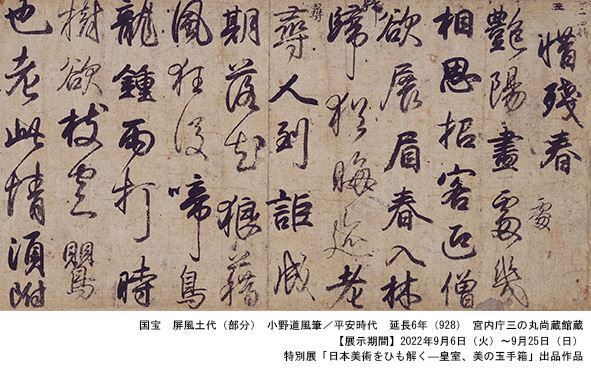 惜殘春
艷陽盡處幾
處
相思招客迎僧
欲展眉春入林
歸猶晦迹老
尋人到詎成
期落花狼藉
風狂後啼鳥
龍鍾雨打時
樹欲枝空鶯
也老此情須附
国宝　屏風土代（部分）　小野道風筆／平安時代　延長6年（928）　宮内庁三の丸尚蔵館蔵
【展示期間】2022年9月6日（火）～9月25日（日）
特別展「日本美術をひも解く―皇室、美の玉手箱」出品作品